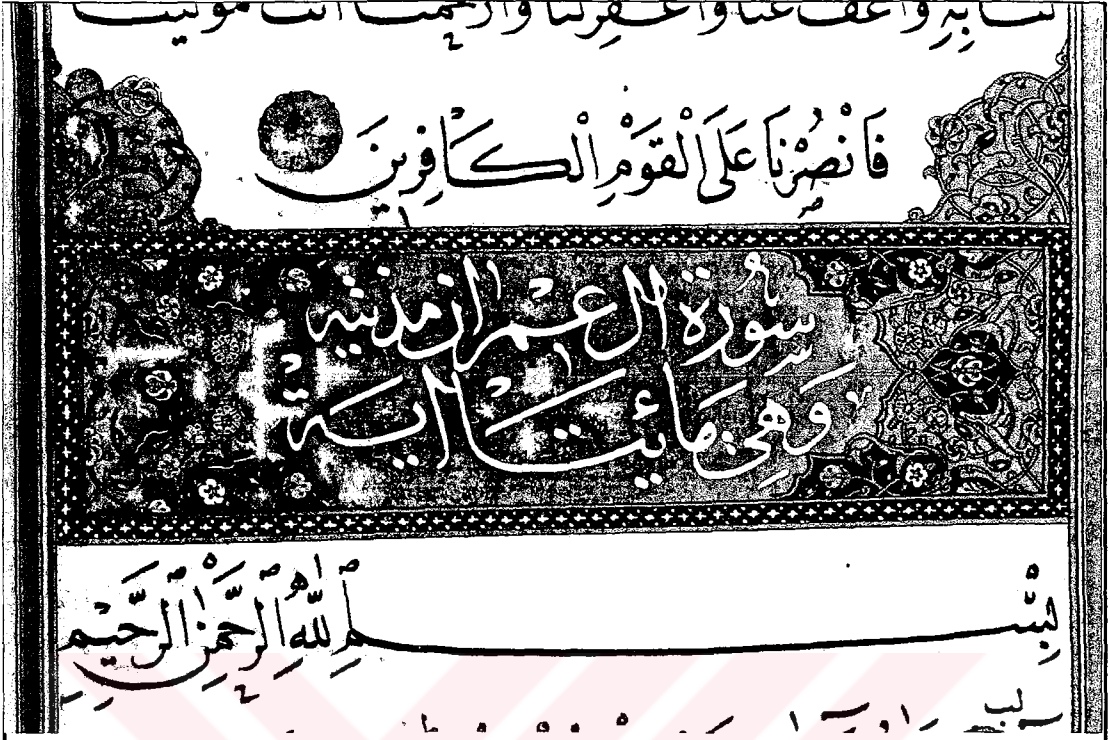 به واعف عنا واغفر لنا وارحمنا انت مولينا
فَانْصُرْنَا عَلَى الْقَوْمِ الْكَافِرِينَ
سورة ال عمران مدنية
وهي مائتا اية
بِسْمِ اللّٰهِ الرَّحْمٰنِ الرَّحِيمِ